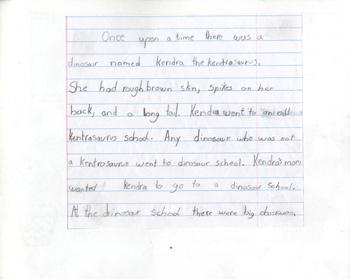 Once upon a time there was a
dinosaur named Kendra the kentrasaurus.
She had rough brown skin, spikes on her
back, and a long tail. Kendra went to
kentrasaurus school. Any dinosaur who was not
a kentrosaurus went to dinosaur school. Kendra's mom
wanted Kendra to go to a dinosaur school.
At the dinosaur school there were big classrooms